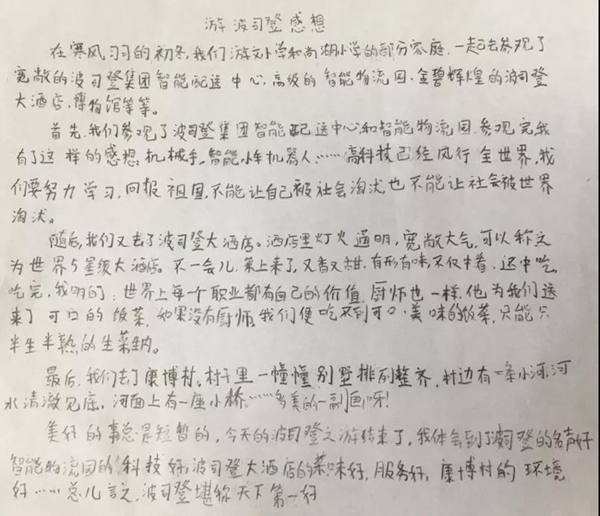 游波司登感想
在寒风习习的初冬,我们游文小学和尚湖小学的部分家庭,一起去参观了
宽敞的波司登集团智能配送中心,高级的智能物流园,金碧辉煌的波司登
大酒店,博物馆等等。
首先,我们参观了波司登集团智能配送中心和智能物流园,参观完我
有了这样的感想,机械手,智能小车机器人……高科技已经风行全世界,我
们要努力学习,回报祖国,不能让自己被社会淘汰,也不能让社会被世界
淘汰。
随后,我们又去了波司登大酒店。酒店里灯火通明,宽敞大气,可以称之
为世界5星级大酒店。不一会儿,菜上来了,又香又甜,有形有味,不仅中看,还中吃。
吃完,我明白:世界上每个职业都有自己的价值,厨师也一样,他为我们送
来了可口的饭菜,如果没有厨师,我们便吃不到可口·美味的饭菜,只能只
半生半熟的生菜
最后,我们去了康博村,村子里一幢幢别墅排列整齐,村边有一条小河,河
水清澈见底,河面上有一座小桥……多美的一副画呀!
美好的事总是短暂的,今天的波司登之游结束了,我体会到了波司登的名声好
智能物流园的科技好,波司登大酒店的菜味好,服务好,康博村的环境
好……总儿言之,波司登堪称天下第一好